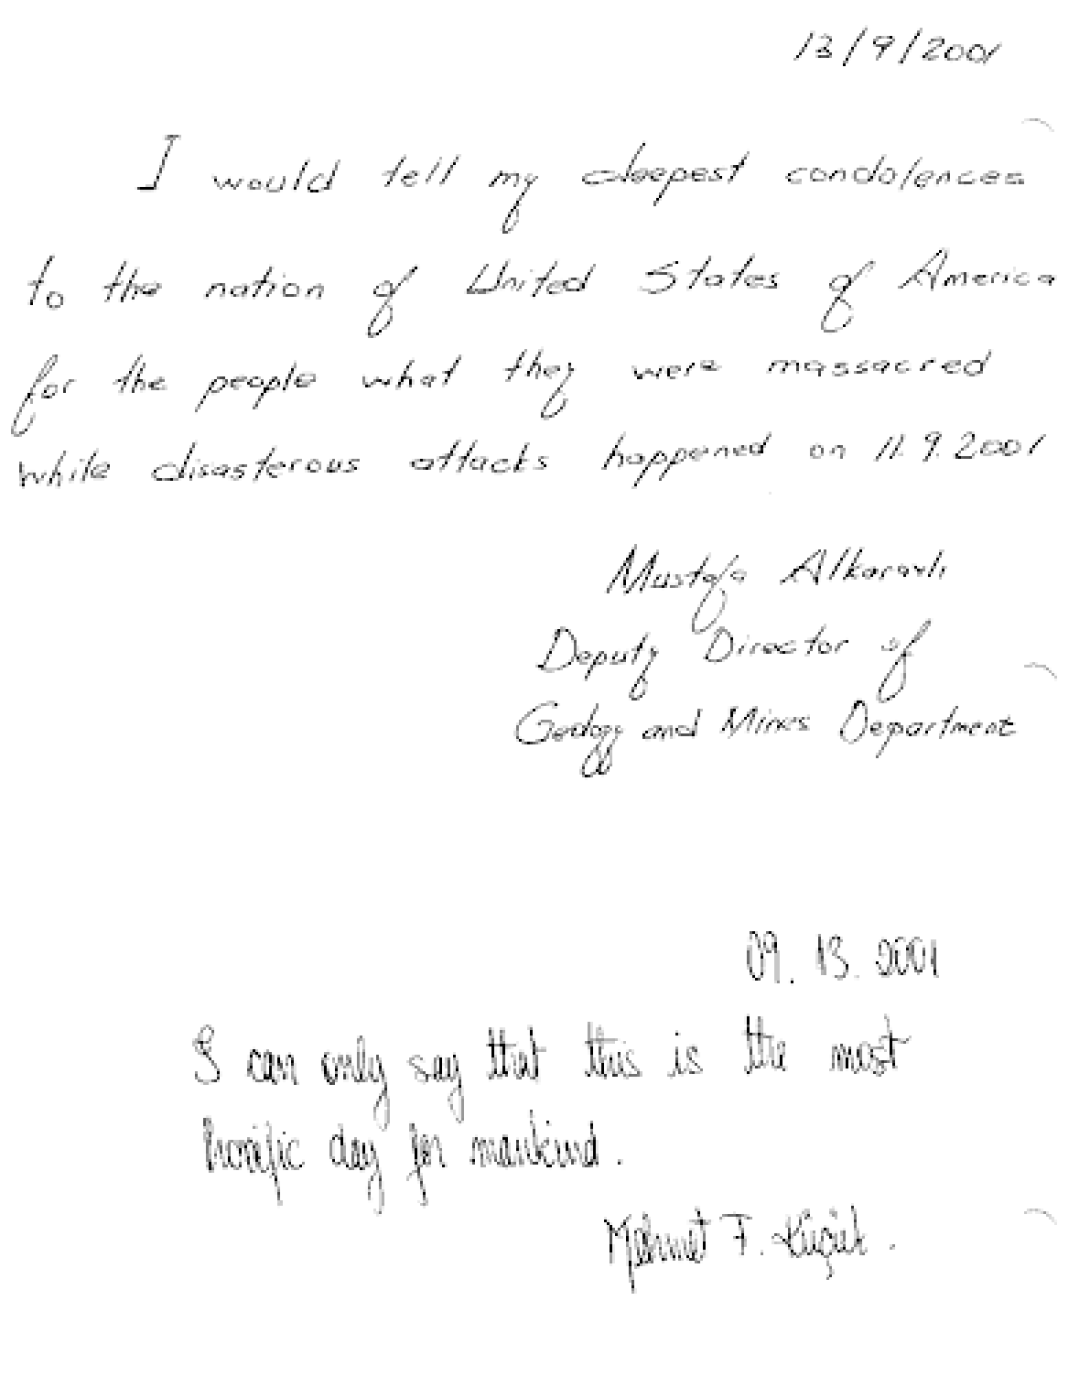 13/9/2001
I would tell my deepest condolences
to the nation of United States of America
for the people what they were massacred
while disasterous attacks happened on 11.9.2001
Mustafa Alkaravlı
Deputy Director of
Geology and Mines Department
09. 13. 2001
I can only say that this is the most
horrific day for mankind.
Mehmet F. Küçük.